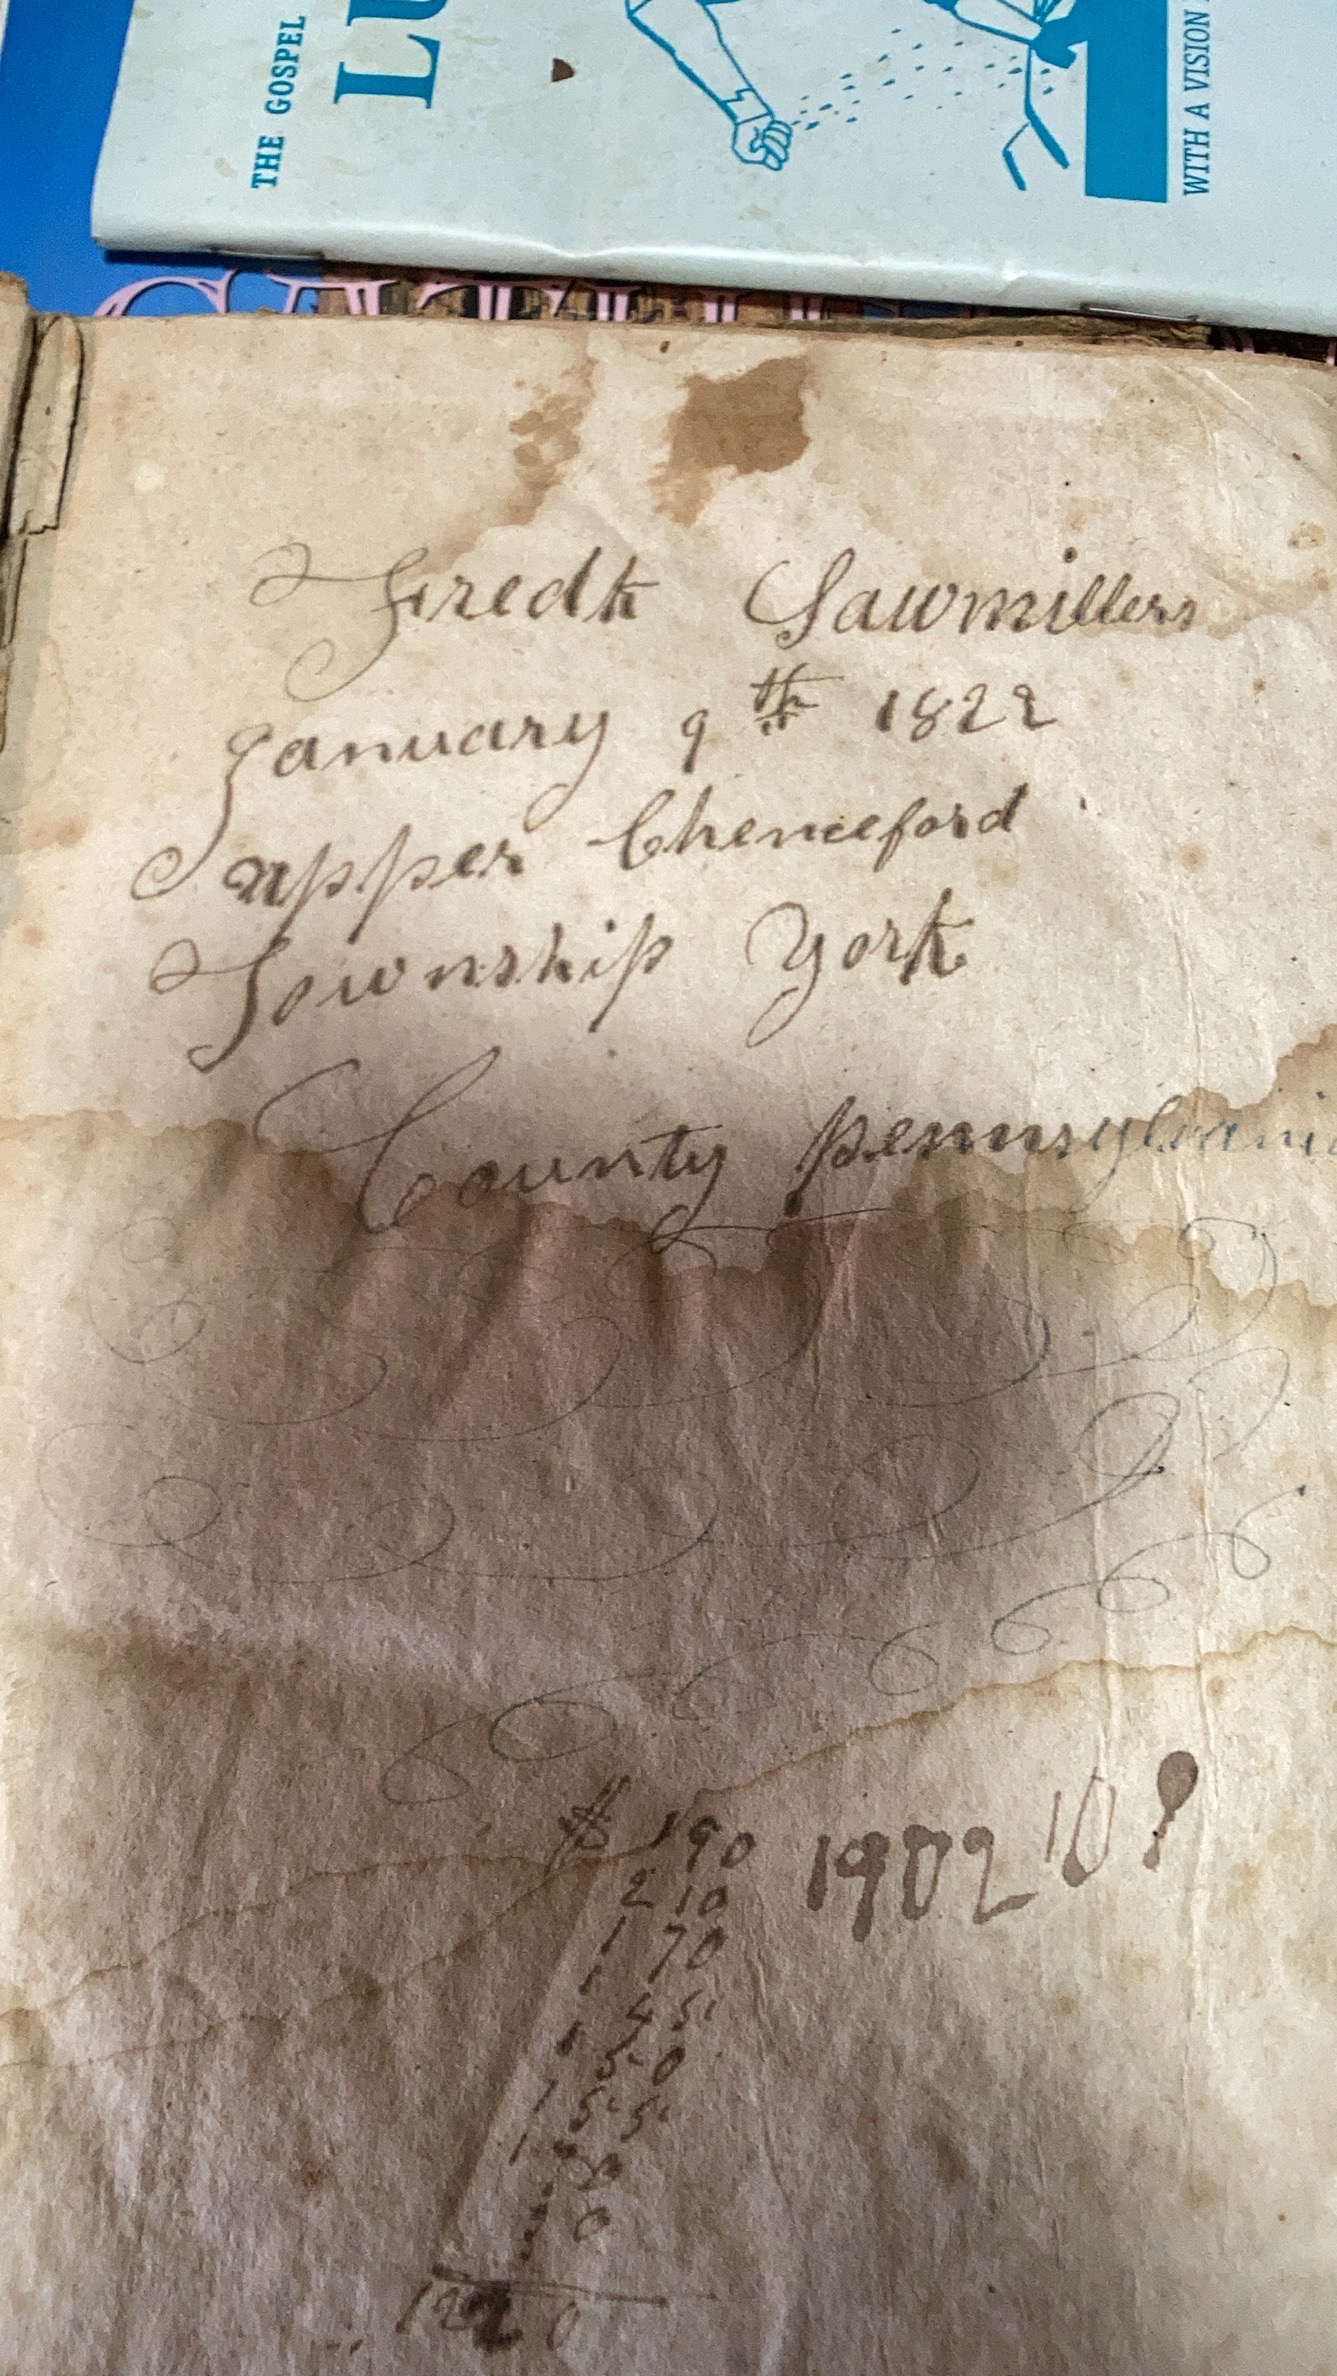 THE GOSPEL
LU
WITH A VISION
Fredk Sawmillers
January 9th 1822
upper Chenceford
Township York
County pennsylvania
$ 190
1902 10
2 10
1 70
1 45
1 50
1 55